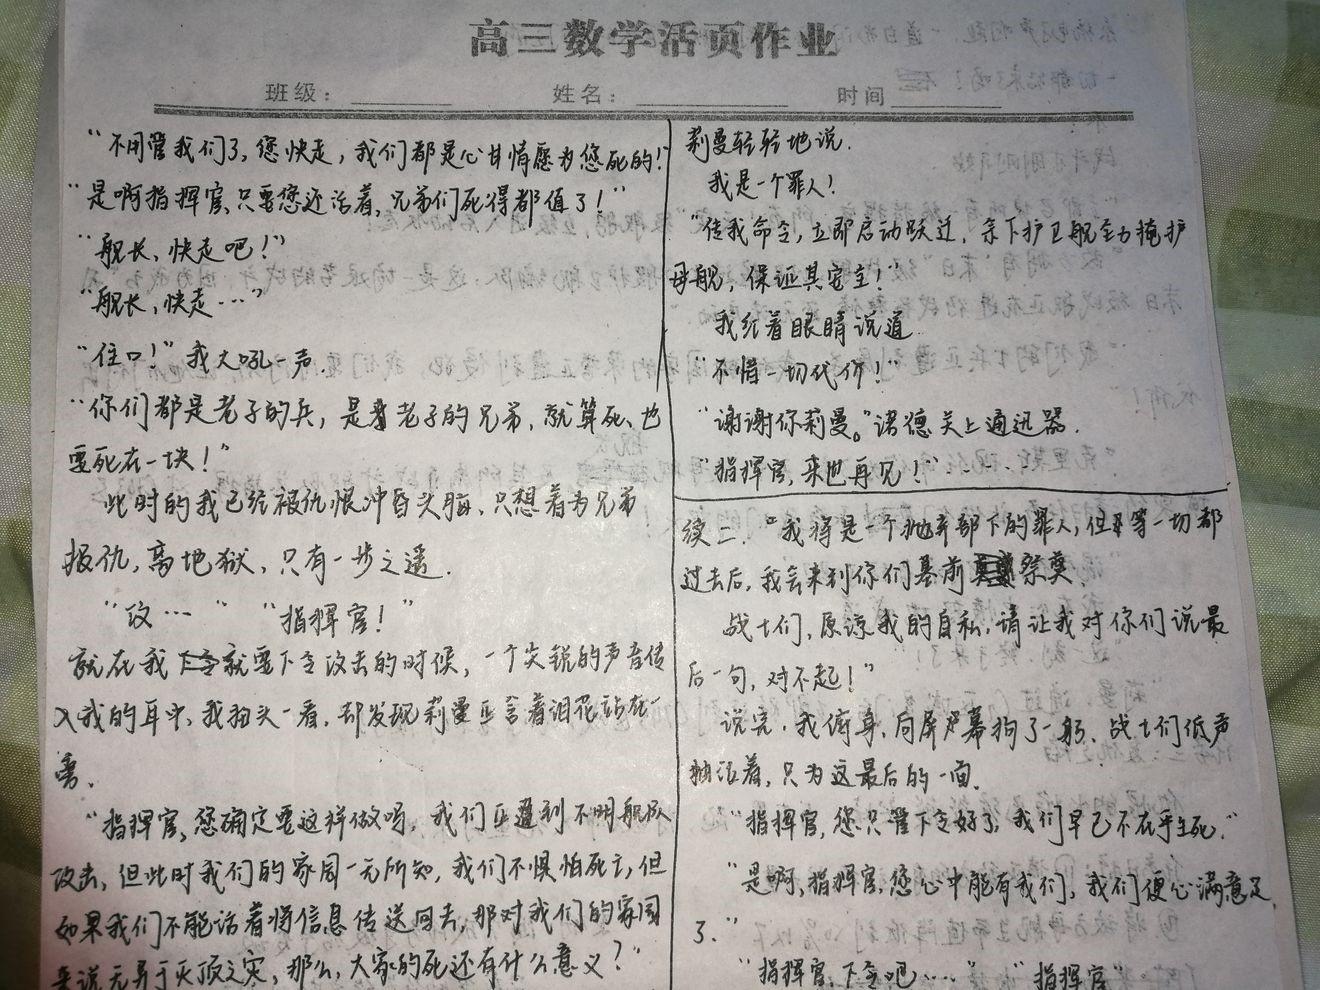 高三数学活页作业
班级：
姓名：
时间
“不用管我们了，您快走，我们都是心甘情愿为您死的！”
“是啊指挥官，只要您还活着，兄弟们死得都值了！”
“舰长，快走吧！”
“舰长，快走…”
“住口！”我大吼一声
“你们都是老子的兵，是老子的兄弟，就算死，也
要死在一块！”
此时的我已经被仇恨冲昏头脑，只想着为兄弟
报仇，离地狱，只有一步之遥.
“攻…” “指挥官！”
就在我就要下令攻击的时候，一个尖锐的声音传
入我的耳中，我扭头一看，却发现莉曼正含着泪花站在一
旁.
“指挥官，您确定要这样做吗，我们正遭到不明舰队
攻击，但此时我们的家园一无所知，我们不惧怕死亡，但
如果我们不能活着将信息传送回去，那对我们的家园
来说无异于灭顶之灾，那么，大家的死还有什么意义？”
莉曼轻轻地说.
我是一个罪人！
“传我命令，立即启动跃迁，余下护卫舰全力掩护
母舰，保证其安全！”
我红着眼睛说道
“不惜一切代价！”
“谢谢你莉曼。”诺德关上通迅器.
“指挥官，来世再见！”……
续二.“我将是一个抛弃部下的罪人，但等一切都
过去后，我会来到你们墓前祭奠.
战士们，原谅我的自私，请让我对你们说最
后一句，对不起！”
说完，我俯身，向屏幕鞠了一躬，战士们低声
抽泣着，只为这最后的一面.
“指挥官，您只管下令好了，我们早已不在乎生死.”
“是啊，指挥官，您心中能有我们，我们便心满意足
了.”
“指挥官，下令吧……” “指挥官”